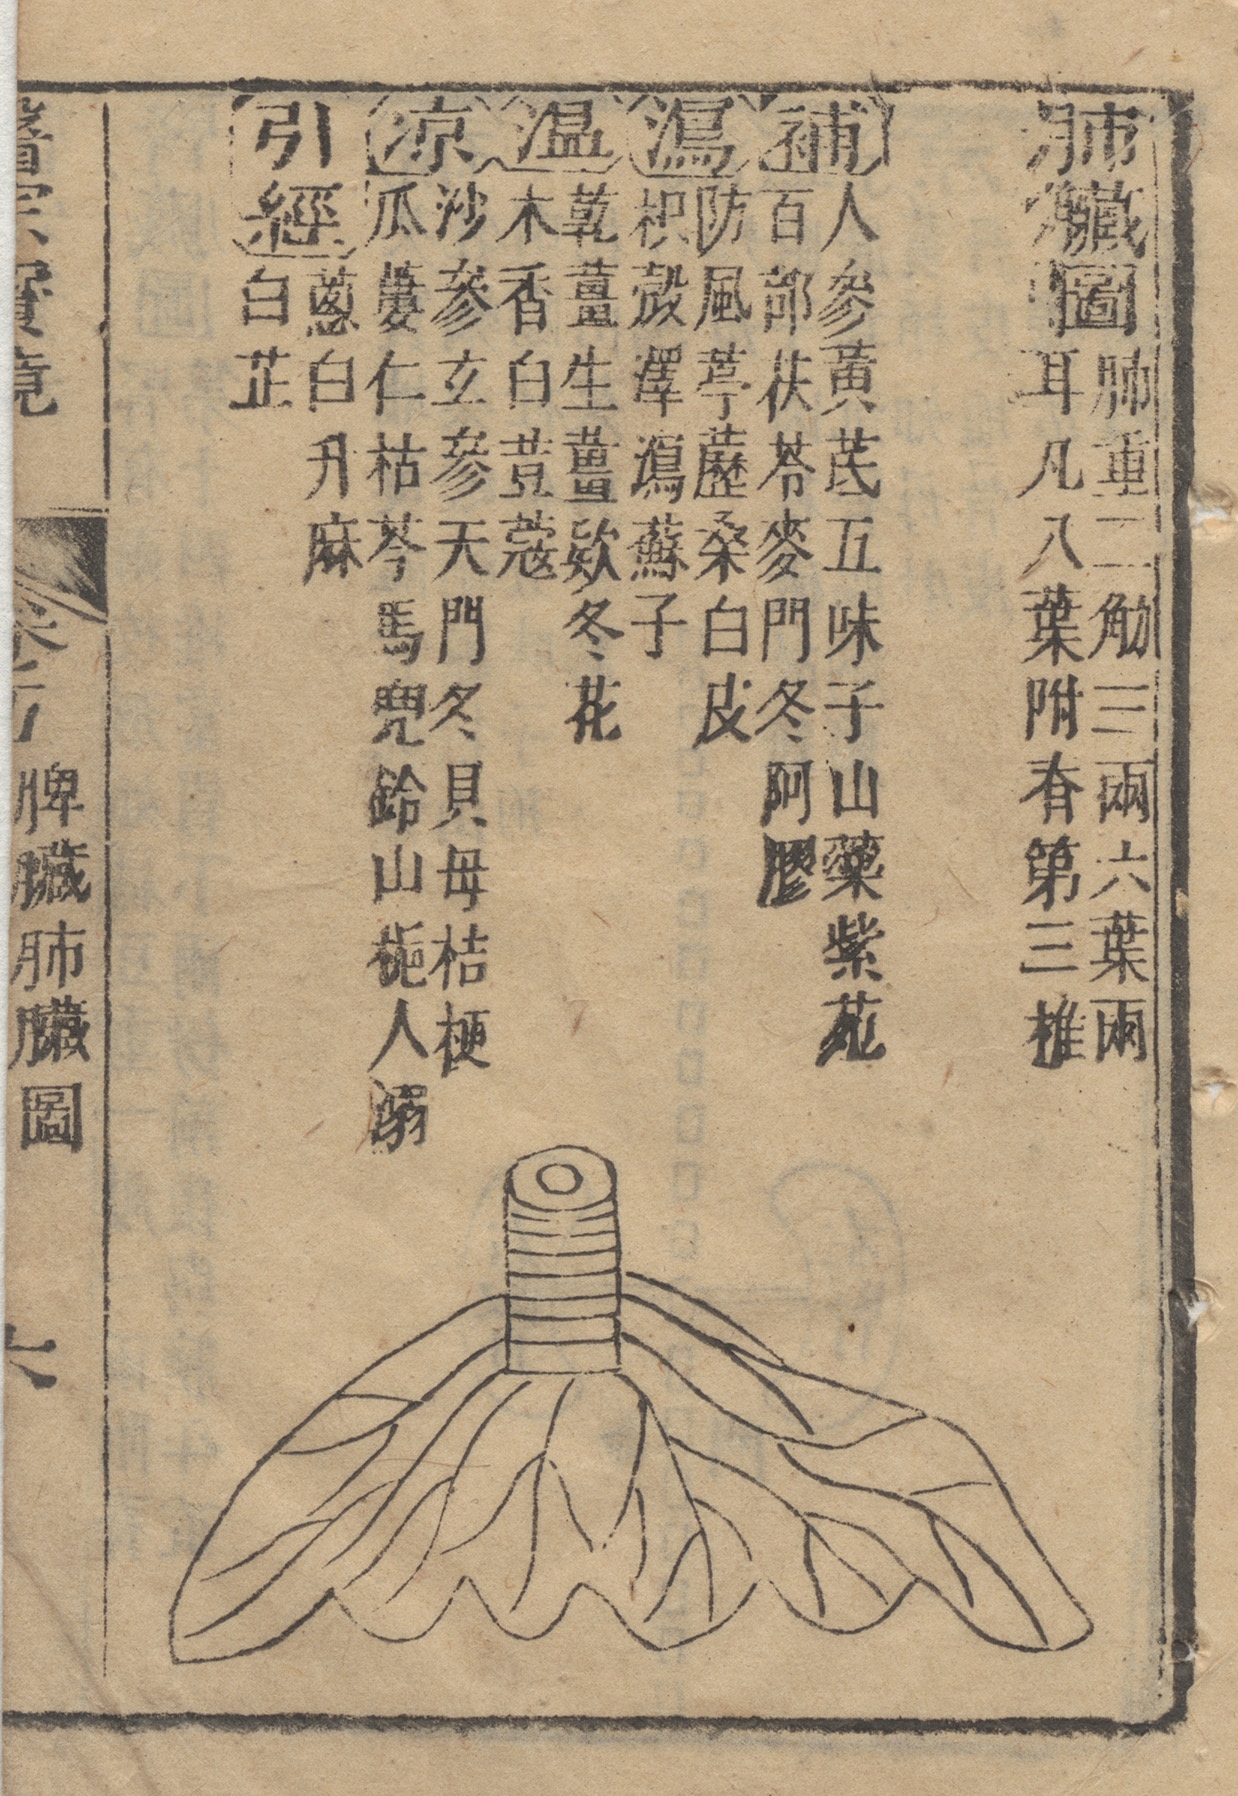 肺臟圖
肺重二觔三兩六葉兩
耳凡八葉附脊第三椎
補
人參黃芪五味子山藥紫苑
百部茯苓麥門冬阿膠
瀉
防風葶藶桑白皮
枳殼澤瀉蘇子
温
乾薑生薑欵冬花
木香白荳蔻
凉
沙參玄參天門冬貝母桔梗
瓜蔞仁枯芩馬兜鈴山梔人溺
引經
蔥白升麻
白芷
脾臟肺臟圖
六